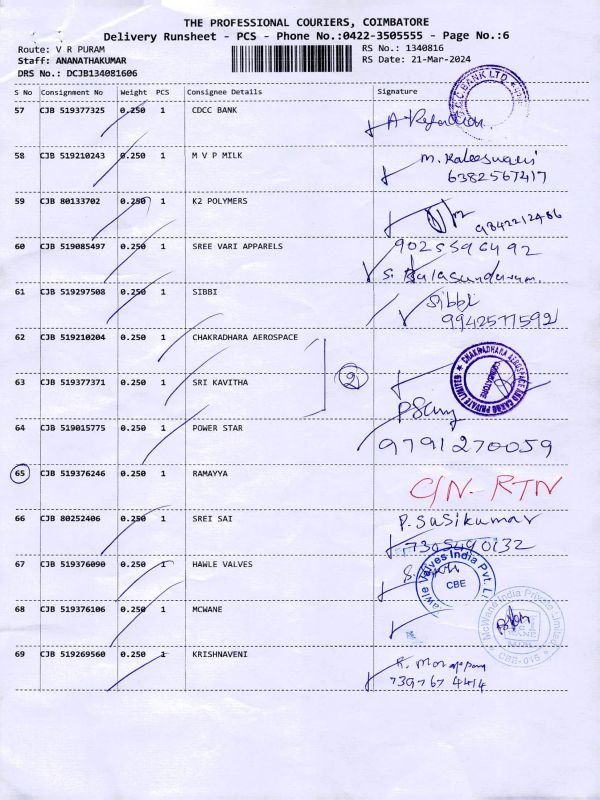 THE PROFESSIONAL COURIERS, COIMBATORE
Delivery Runsheet - PCS - Phone No.:0422-3505555 - Page No.:6
Route: V R PURAM RS No.: 1340816
Staff: ANANATHAKUMAR RS Date: 21-Mar-2024
DRS No.: DCJB134081606
S No Consignment No Weight PCS Consignee Details Signature
C.C. BANK LTD.
57 CJB 519377325 0.250 1 CDCC BANK
58 CJB 519210243 0.250 1 M V P MILK M. Kaleeswari
6382567417
59 CJB 80133702 0.250 1 K2 POLYMERS
9842212486
60 CJB 519085497 0.250 1 SREE VARI APPARELS 9025596492
S. Balasundaram.
61 CJB 519297508 0.250 1 SIBBI Sibbi
9942577592
62 CJB 519210204 0.250 1 CHAKRADHARA AEROSPACE
CHAKRADHARA AEROSPACE AND CARGO PRIVATE LIMITED
COIMBATORE
63 CJB 519377371 0.250 1 SRI KAVITHA 2
64 CJB 519015775 0.250 1 POWER STAR
9791270059
65 CJB 519376246 0.250 1 RAMAYYA C/N- RTN
66 CJB 80252406 0.250 1 SREI SAI P. Sasikumar
7305490132
67 CJB 519376090 0.250 1 HAWLE VALVES
Hawle Valves India Pvt. L
CBE
68 CJB 519376106 0.250 1 MCWANE
McWane India Private Limited
CBE-015
69 CJB 519269560 0.250 1 KRISHNAVENI
739767 4414